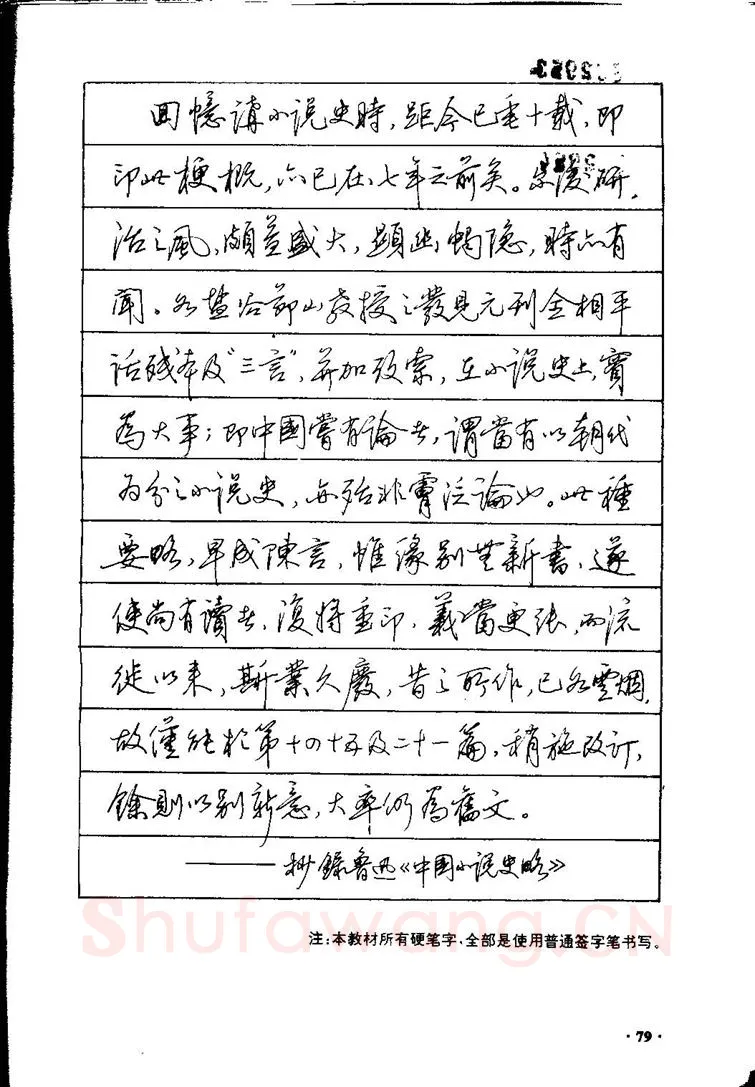 回憶講小说史時，距今已垂十載，即
印此梗概，亦已在七年之前矣。尔後研
治之風，頗益盛大，顯幽燭隐，時亦有
聞。如盐谷節山教授之發見元刊全相平
话残本及“三言”，并加攷索，在小说史上，實
為大事；即中國嘗有論者，謂當有以朝代
为分之小说史，亦殆非膚泛之論也。此種
要略，早成陳言，惟缘别無新書，遂
使尚有讀者，復將重印，義當更张，而流
徙以来，斯業久廢，昔之所作，已如雲烟，
故僅能於第十四十五及二十一篇，稍施改订，
餘則以别無新意，大率仍為舊文。
——抄錄魯迅《中国小说史略》
Shufawang.CN
注：本教材所有硬笔字，全部是使用普通签字笔书写。
·79·